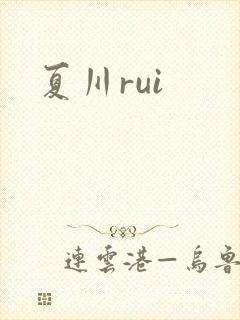 夏川rui
連雲港—烏魯